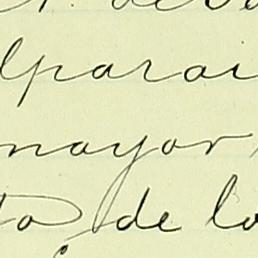 lparai
mayor
to, de lo